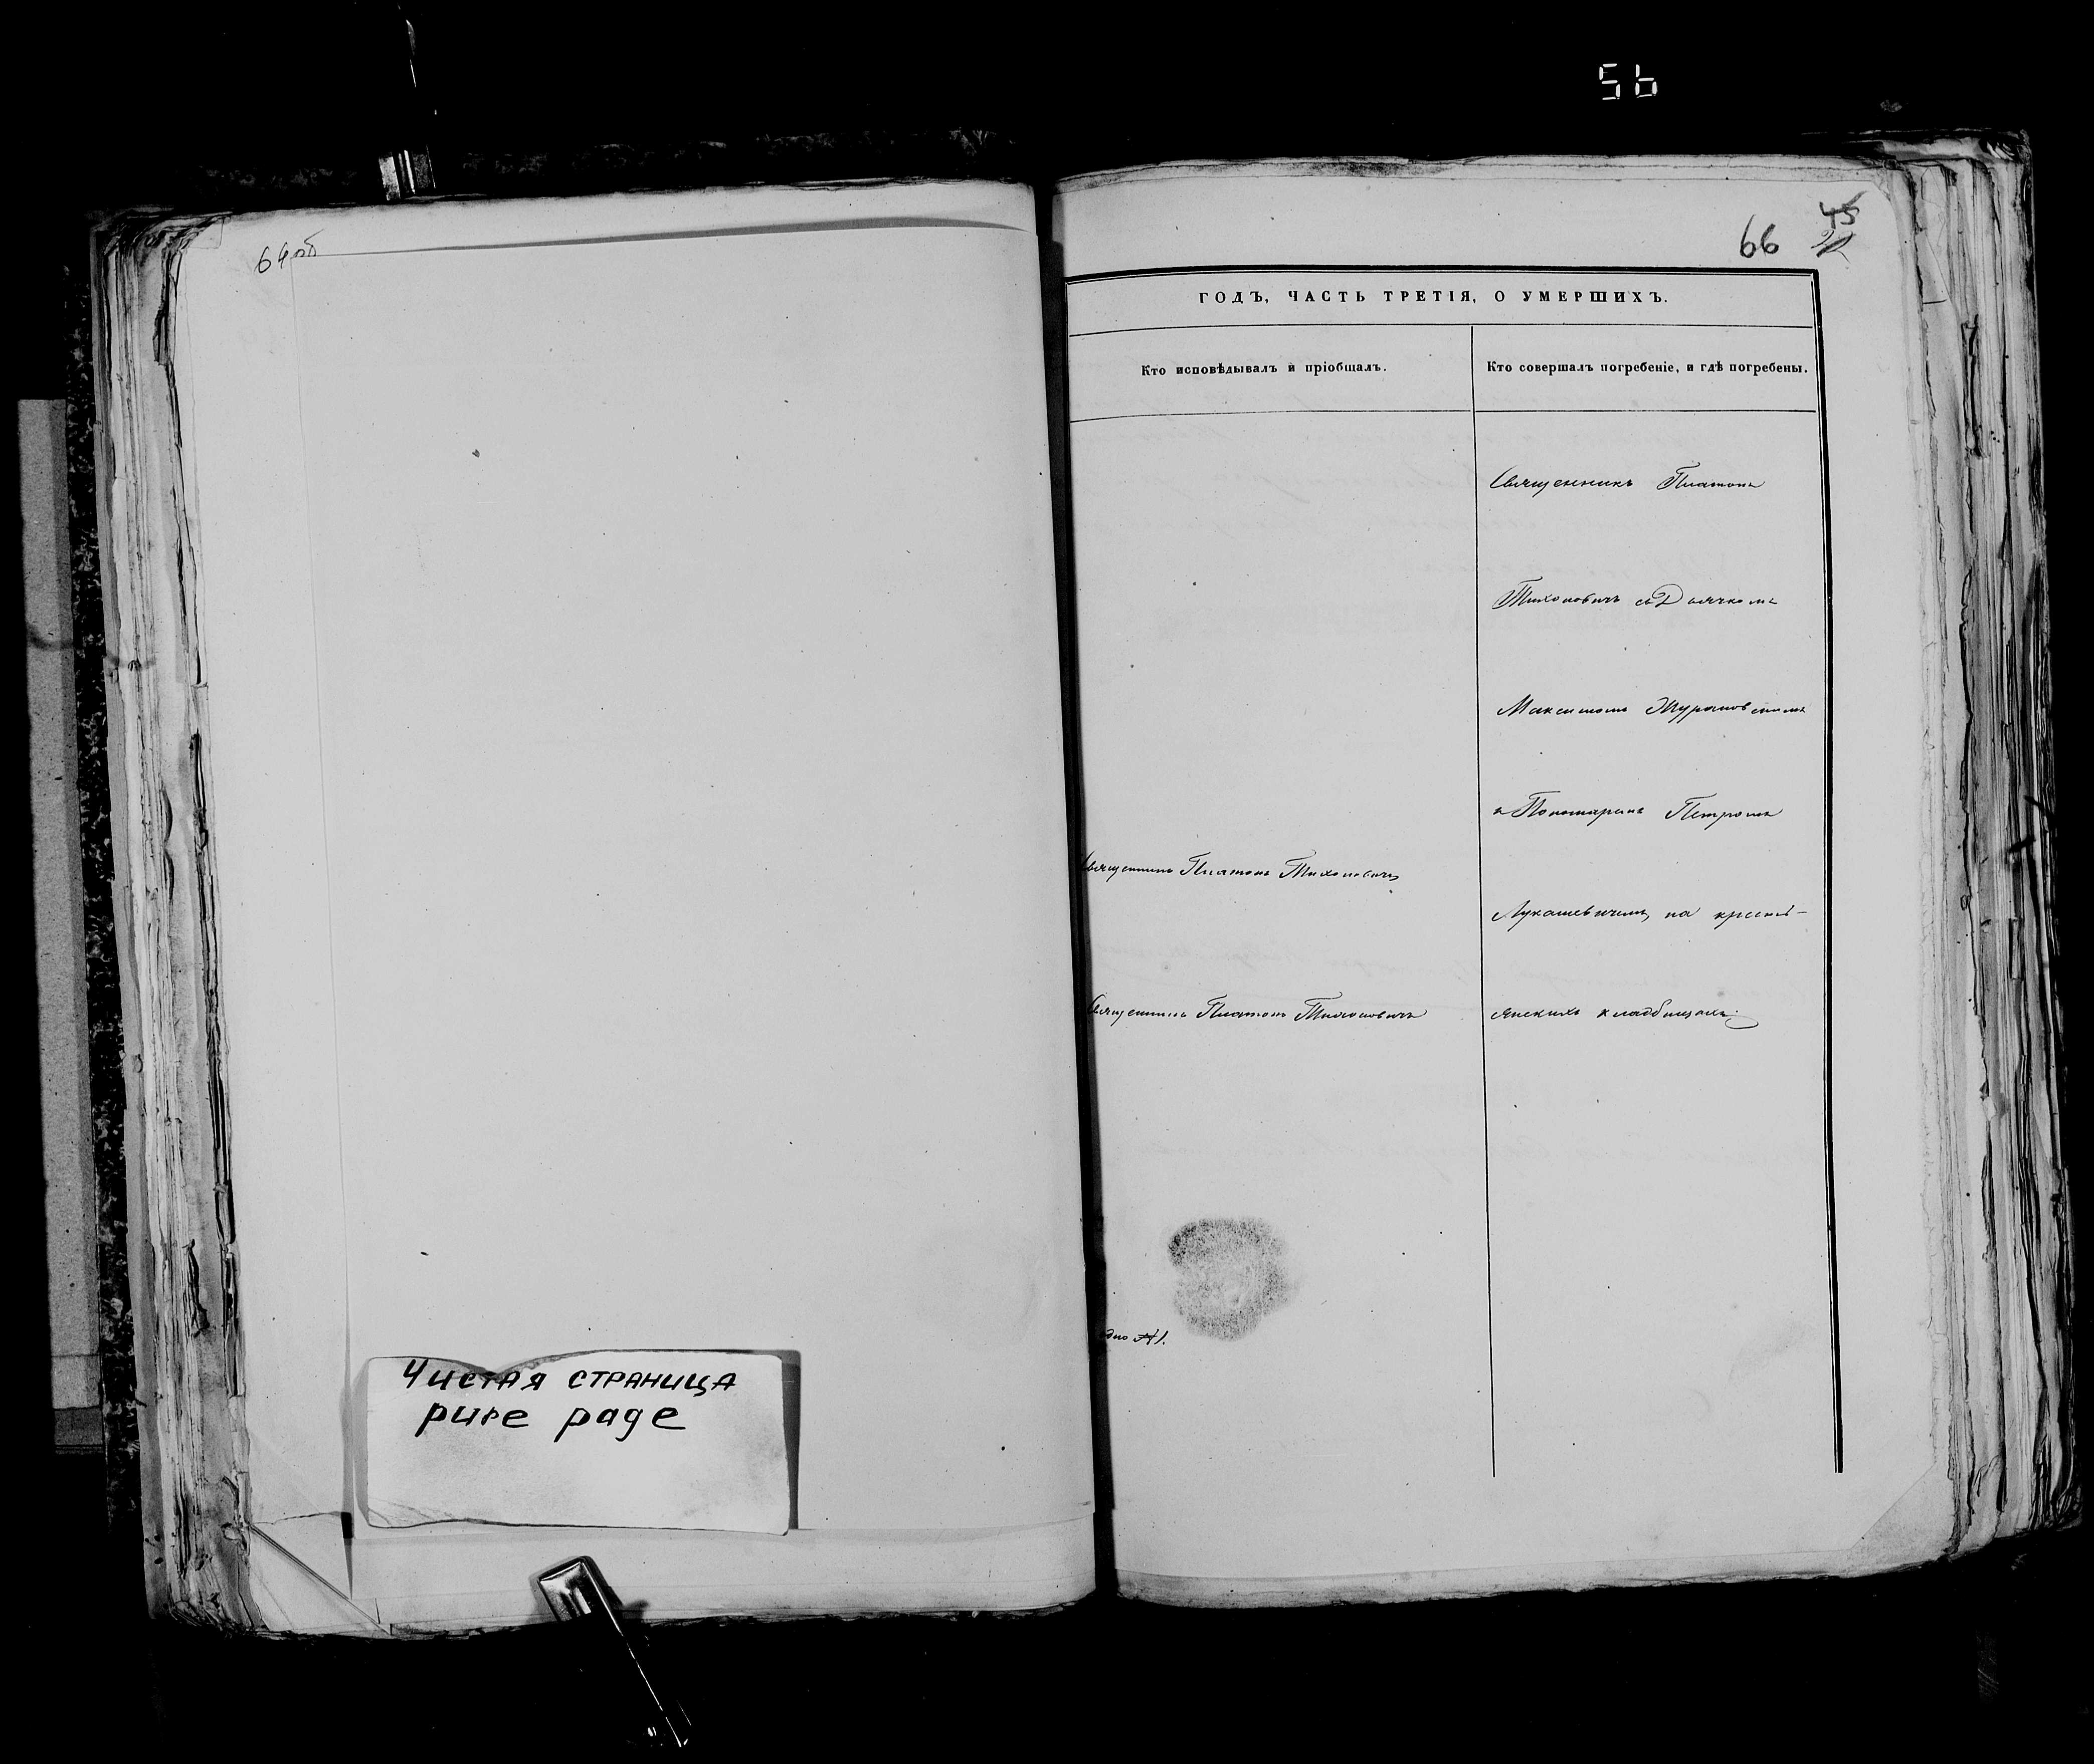 56
64об
Чистая страница
pure page
66
45
ГОДЪ, ЧАСТЬ ТРЕТІЯ, О УМЕРШИХЪ.
Кто исповѣдывалъ и пріобщалъ.
Кто совершалъ погребеніе, и гдѣ погребены.
Священникъ Платонъ
Тихоновичъ съ Дьячкомъ
Максимомъ
и Пономаремъ Петромъ
Священникъ Платонъ Тихоновичъ
Лукашевичемъ, на кресть-
Священникъ Платонъ Тихоновичъ
янскихъ кладбищахъ.